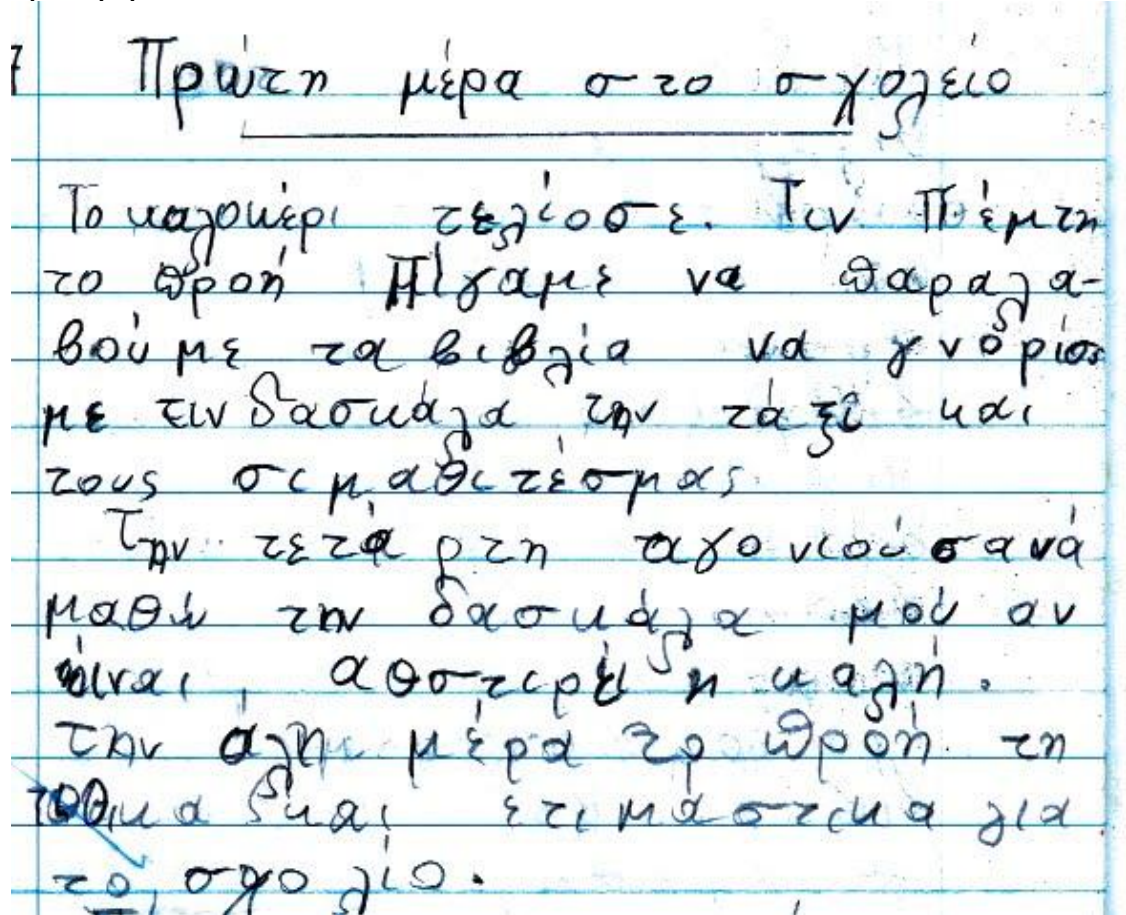 Πρώτη μέρα στο σχολείο
Το καλοκέρι τελίοσε. Τιν Πέμτη
το προή Πίγαμε να παραλα-
βούμε τα βιβλία να γνορίσ
με τιν δασκάλα την τάξι και
τους σιμαθιτέσμας.
Την τετάρτη αγονιούσανά
μαθώ την δασκάλα μού αν
είναι, αθστιρή η καλή.
την άλη μέρα το προή. τη
και ετιμάστικα για
το σχολίο.